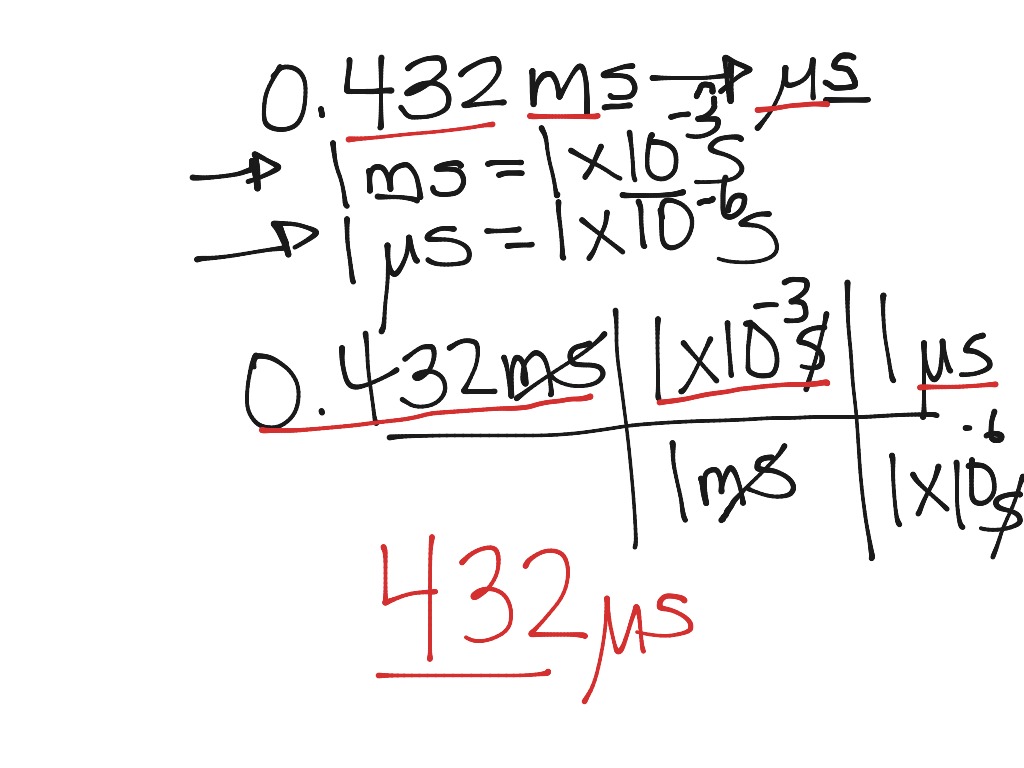 0.432 ms → μs
→ 1 ms = 1 x 10⁻³ s
→ 1 μs = 1 x 10⁻⁶ s
0.432 ms | 1 x 10⁻³ s | 1 μs
1 ms | 1 x 10⁻⁶ s
432 μs